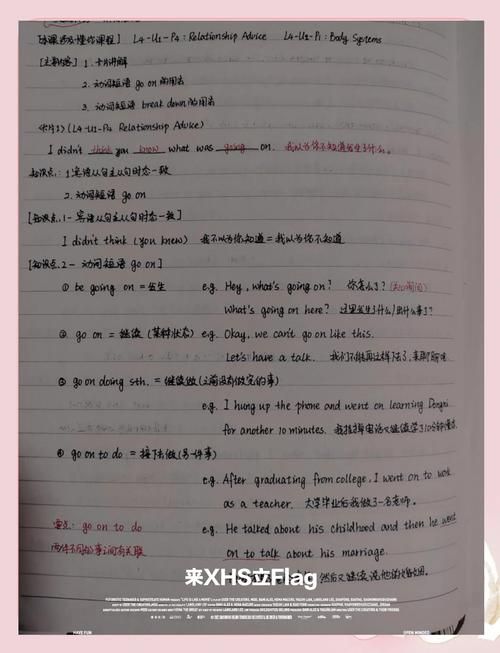 【本课涉及懂你课程】 L4-U1-P4: Relationship Advice L4-U1-P1: Body Systems
[主要内容] 1. 卡片讲解
2. 动词短语 go on 的用法
3. 动词短语 break down 的用法
<卡片1>(L4-U1-P4 Relationship Advice)
I didn't think you know what was going on. 我以为你不知道发生了什么。
知识点: 1 宾语从句主从句时态一致
2. 动词短语 go on
[知识点1- 宾语从句主从句时态一致]
I didn't think (you knew) 我不以为你知道 = 我以为你不知道
[知识点2- 动词短语 go on]
① be going on = 发生 e.g. Hey, what's going on? 你怎么了?
What's going on here? 这里发生了什么/出什么事了?
② go on = 继续 (某种状态) e.g. Okay, we can't go on like this.
Let's have a talk. 我们不能再这样下去了,
③ go on doing sth. = 继续做(之前没有做完的事)
e.g. I hung up the phone and went on learning
for another 10 minutes. 我挂掉电话又继续学了10分钟
④ go on to do = 接下去做(另一件事)
e.g. After graduating from college, I went on to work
as a teacher. 大学毕业后我做了一名老师。
重点: go on to do e.g. He talked about his childhood and then he went
两件不同的事间有关联 on to talk about his marriage.
然后又继续说他的婚姻。
来XHS立Flag
HAVE FUN
OPEN MINDED